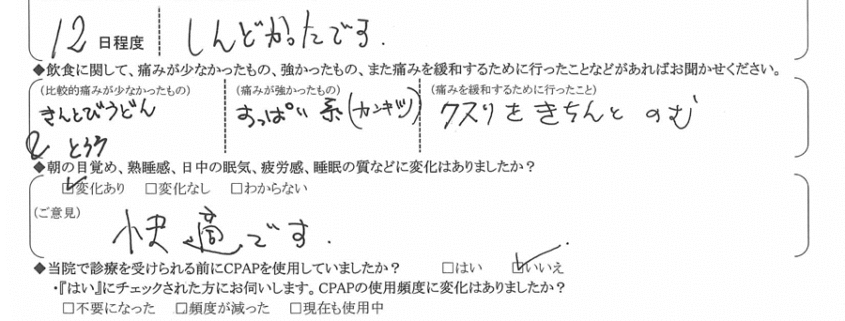 12 日程度 しんどかったです.
◆飲食に関して、痛みが少なかったもの、強かったもの、また痛みを緩和するために行ったことなどがあればお聞かせください。
(比較的痛みが少なかったもの) (痛みが強かったもの) (痛みを緩和するために行ったこと)
きんとびうどん すっぱい系(カンキツ) クスリをきちんとのむ
とろろ
◆朝の目覚め、熟睡感、日中の眠気、疲労感、睡眠の質などに変化はありましたか？
☑変化あり □変化なし □わからない
(ご意見)
快適です.
◆当院で診療を受けられる前にCPAPを使用していましたか？ □はい ☑いいえ
・『はい』にチェックされた方にお伺いします。CPAPの使用頻度に変化はありましたか？
□不要になった □頻度が減った □現在も使用中